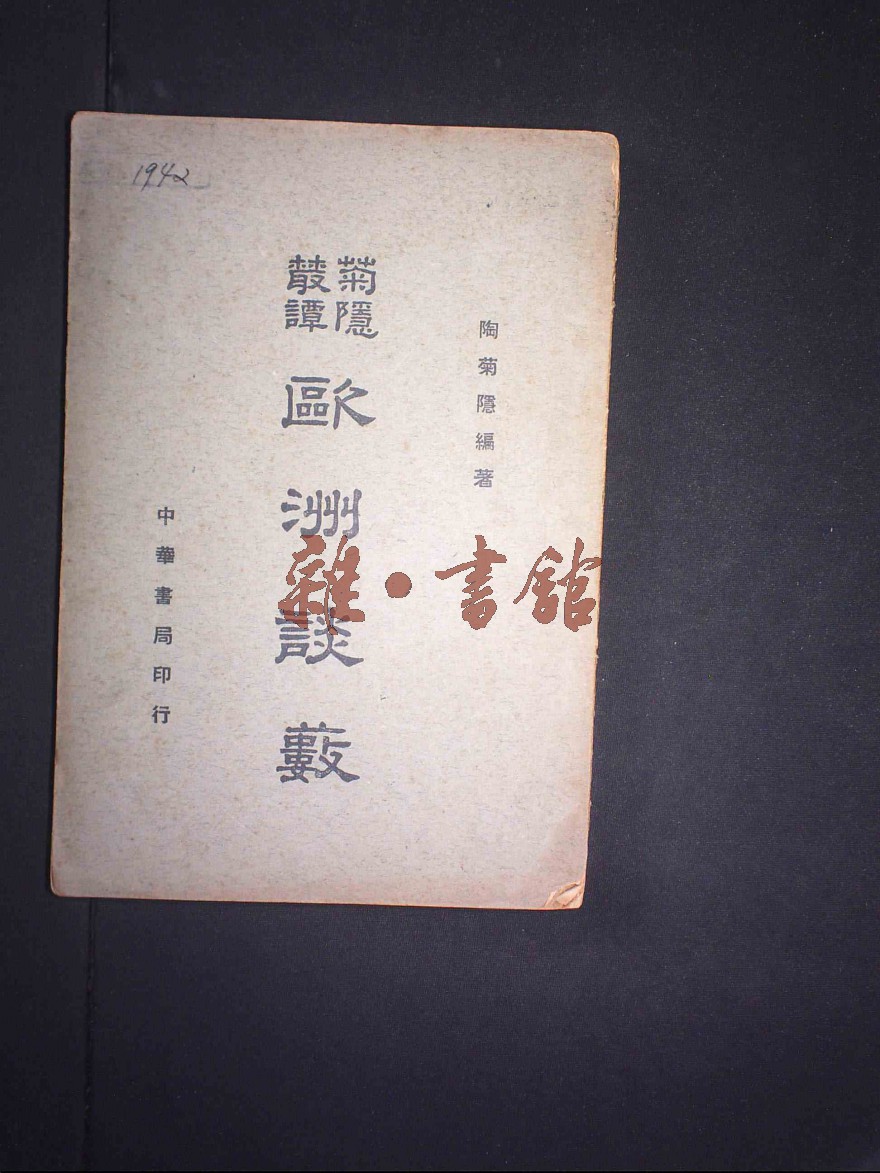 1942
陶菊隱編著
菊隱
叢譚
歐洲談藪
中華書局印行
雜·書館